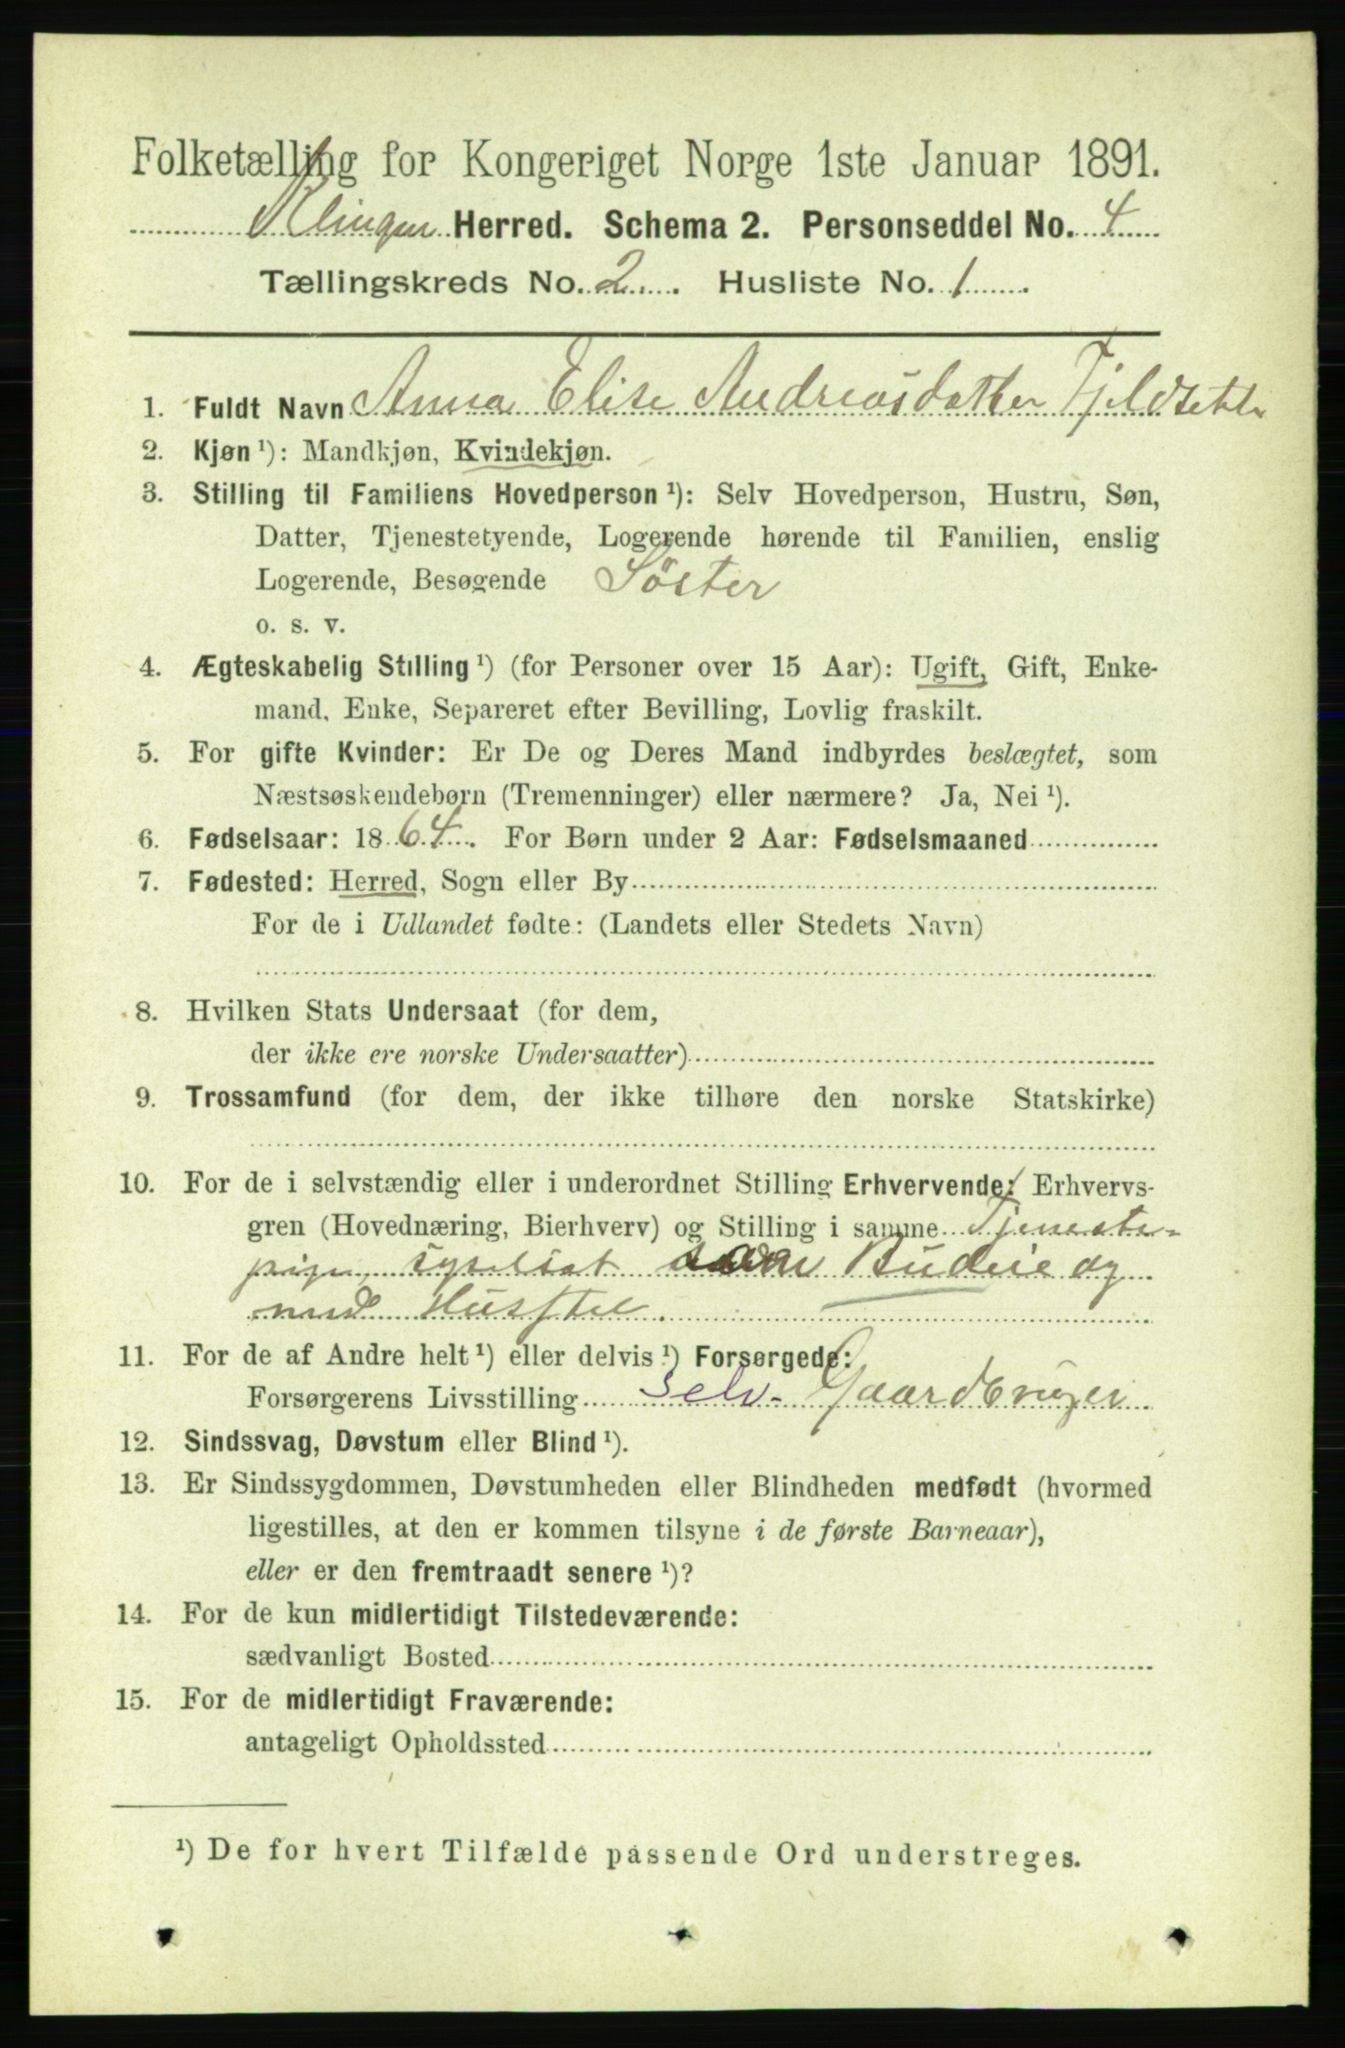 Folketælling for Kongeriget Norge 1ste Januar 1891.
Klingen Herred. Schema 2. Personseddel No. 4
Tællingskreds No. 2. Husliste No. 1.
1. Fuldt Navn Anna Elise Andreasdatter Fjeldsetle
2. Kjøn ¹): Mandkjøn, Kvindekjøn.
3. Stilling til Familiens Hovedperson ¹): Selv Hovedperson, Hustru, Søn,
Datter, Tjenestetyende, Logerende hørende til Familien, enslig
Logerende, Besøgende Söster
o. s. v.
4. Ægteskabelig Stilling ¹) (for Personer over 15 Aar): Ugift, Gift, Enke-
mand, Enke, Separeret efter Bevilling, Lovlig fraskilt.
5. For gifte Kvinder: Er De og Deres Mand indbyrdes beslægtet, som
Næstsøskendebørn (Tremenninger) eller nærmere? Ja, Nei ¹).
6. Fødselsaar: 1864. For Børn under 2 Aar: Fødselsmaaned
7. Fødested: Herred, Sogn eller By
For de i Udlandet fødte: (Landets eller Stedets Navn)
8. Hvilken Stats Undersaat (for dem,
der ikke ere norske Undersaatter)
9. Trossamfund (for dem, der ikke tilhøre den norske Statskirke)
10. For de i selvstændig eller i underordnet Stilling Erhvervende: Erhvervs-
gren (Hovednæring, Bierhverv) og Stilling i samme Tjeneste-
pige, syselsat som Budeie og
med Husstel.
11. For de af Andre helt ¹) eller delvis ¹) Forsørgede:
Forsørgerens Livsstilling Selv- Gaardbruger
12. Sindssvag, Døvstum eller Blind ¹).
13. Er Sindssygdommen, Døvstumheden eller Blindheden medfødt (hvormed
ligestilles, at den er kommen tilsyne i de første Barneaar),
eller er den fremtraadt senere ¹)?
14. For de kun midlertidigt Tilstedeværende:
sædvanligt Bosted
15. For de midlertidigt Fraværende:
antageligt Opholdssted
¹) De for hvert Tilfælde passende Ord understreges.